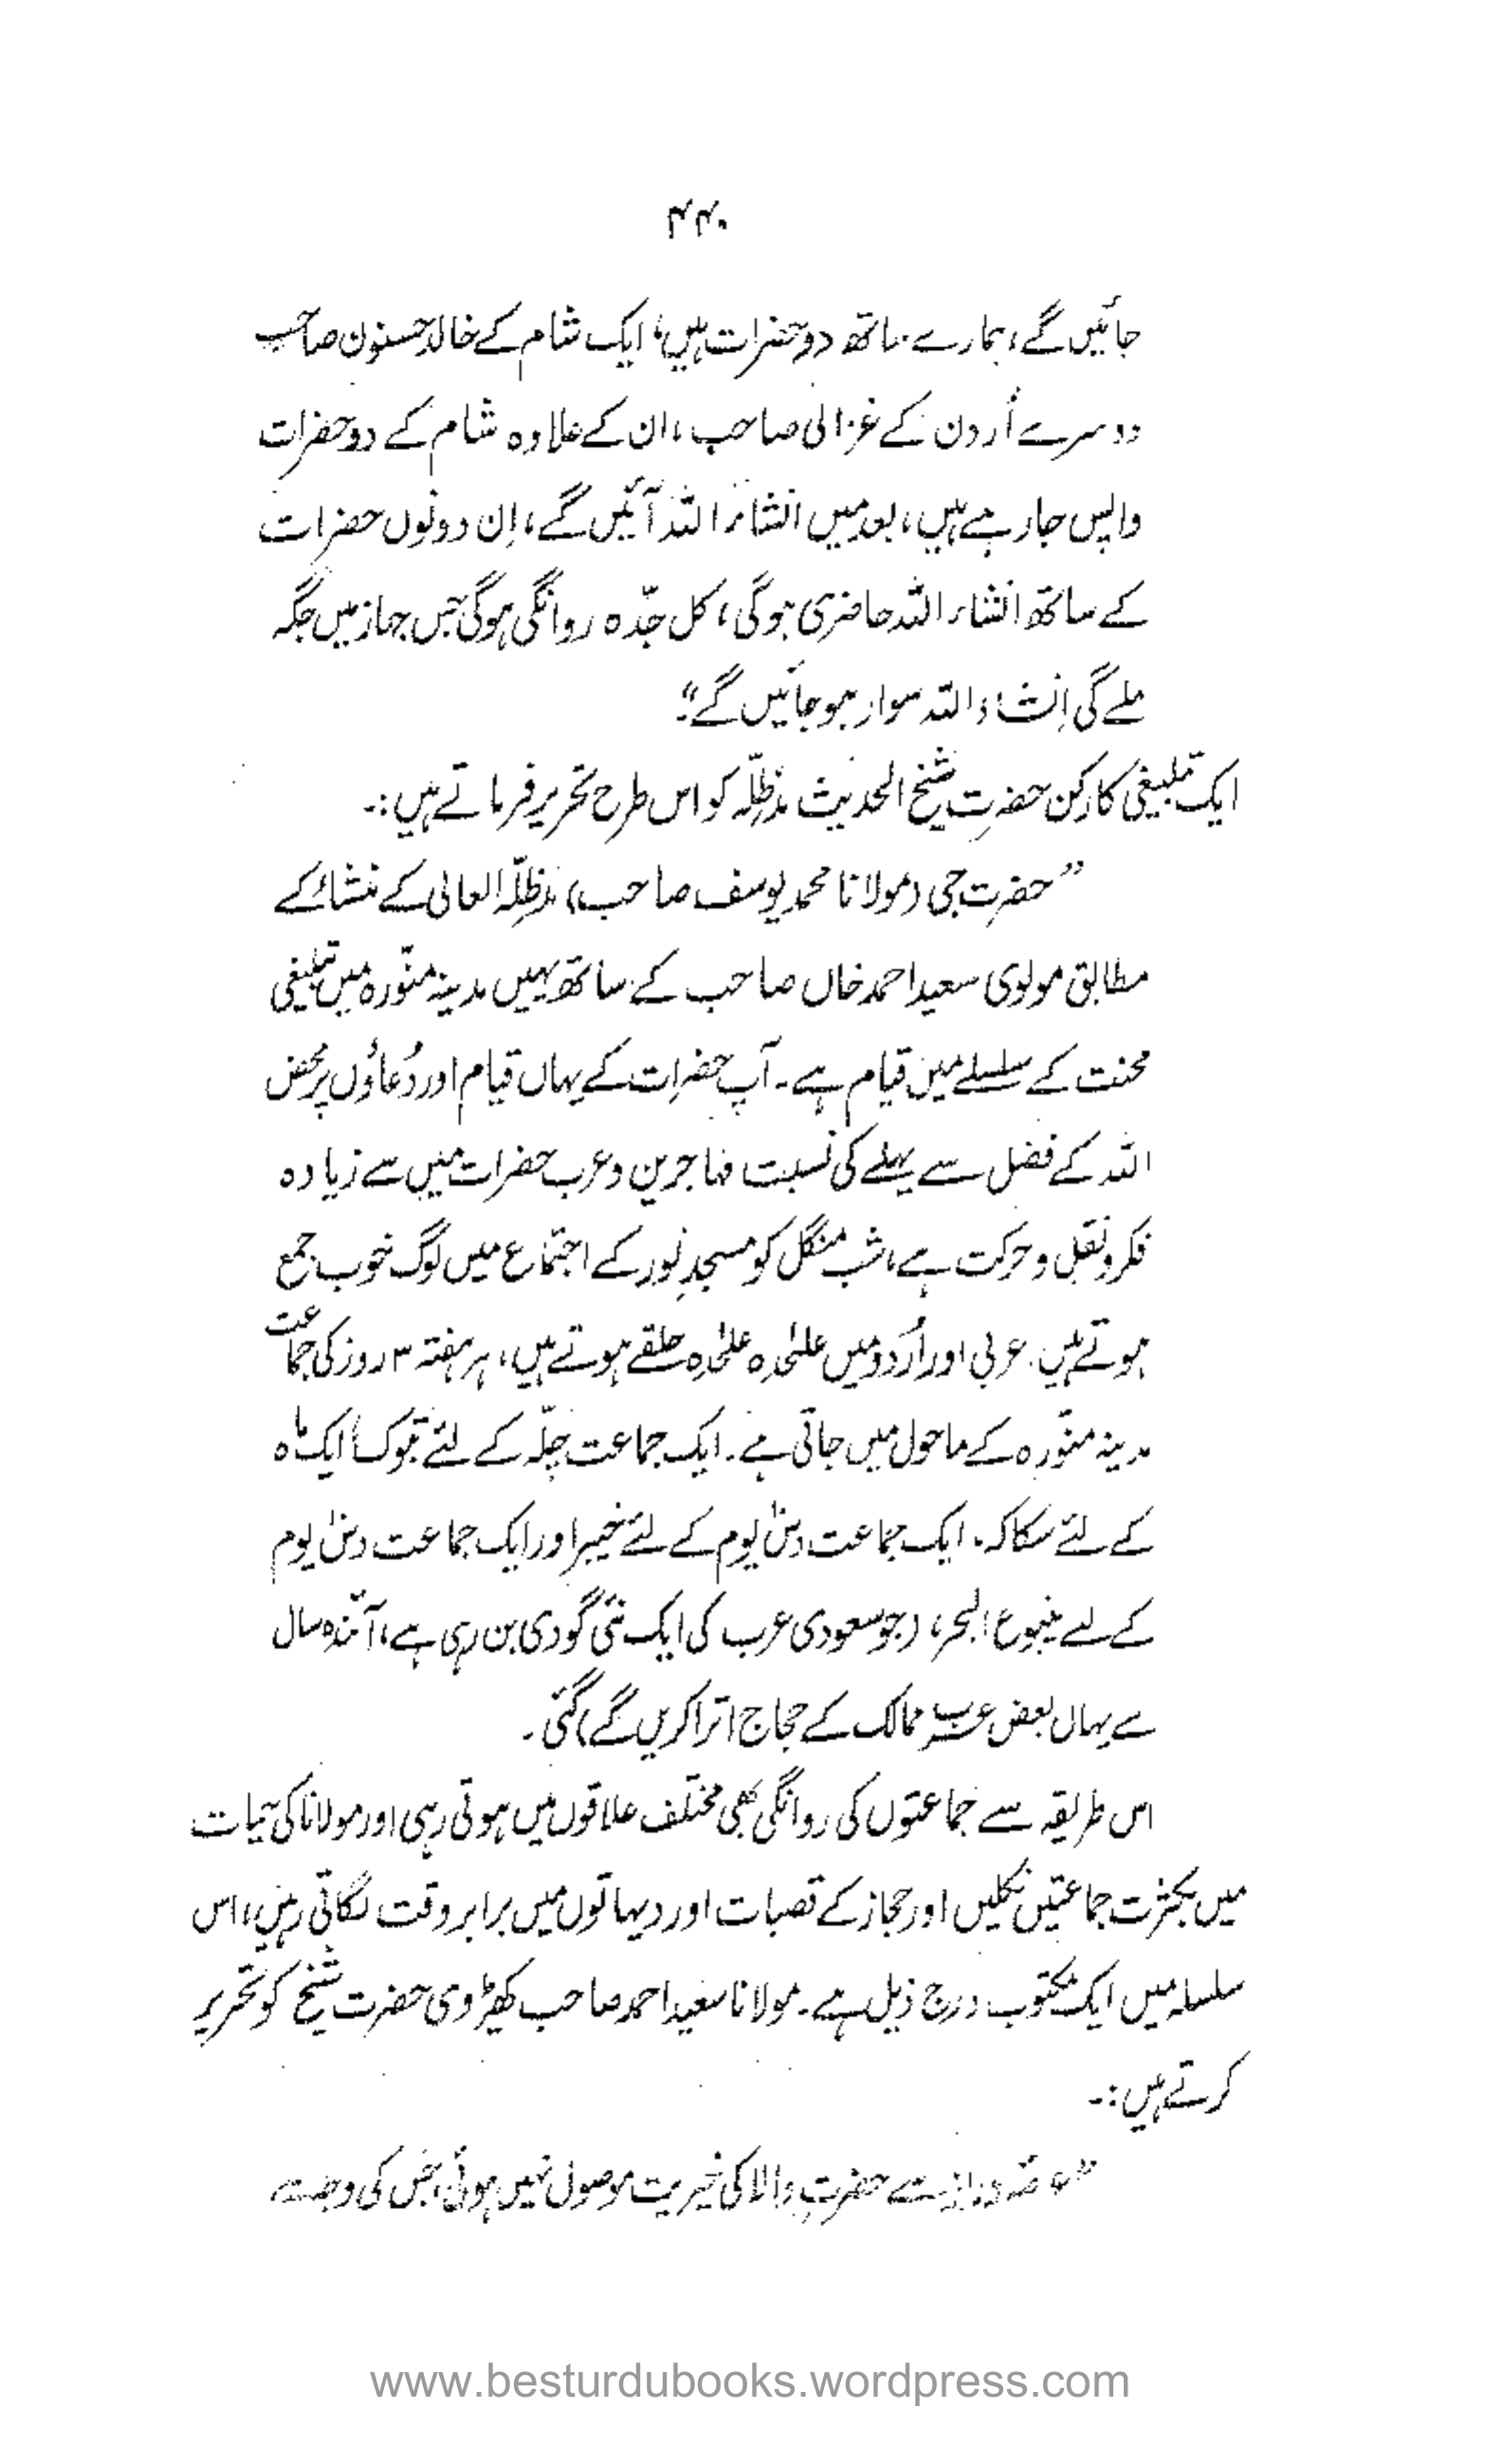 ۴۴۰
جائیں گے، ہمارے ساتھ دو حضرات ہیں، ایک شام کے خالد حسنون صاحب
دوسرے اُردن کے غزالی صاحب، ان کے علاوہ شام کے دو حضرات
واپس جا رہے ہیں، بعد میں انشاء اللہ آئیں گے، اِن دونوں حضرات
کے ساتھ انشاء اللہ حاضری ہوگی، کل جدّہ روانگی ہوگی جس جہاز میں جگہ
ملے گی اِنشاء اللہ سوار ہو جائیں گے"۔
ایک تبلیغی کارکن حضرت شیخ الحدیث مدظلّہ کو اس طرح تحریر فرماتے ہیں:۔
"حضرت جی (مولانا محمد یوسف صاحب) مدظلّہ العالی کے منشائے کے
مطابق مولوی سعید احمد خاں صاحب کے ساتھ یہیں مدینہ منوّرہ میں تبلیغی
محنت کے سلسلے میں قیام ہے۔ آپ حضرات کے یہاں قیام اور دُعاؤں پر محض
اللہ کے فضل سے پہلے کی نسبت مہاجرین و عرب حضرات میں سے زیادہ
فکر و نقل و حرکت ہے، شب منگل کو مسجدِ نور کے اجتماع میں لوگ خوب جمع
ہوتے ہیں۔ عربی اور اُردو میں علیٰحدہ علیٰحدہ حلقے ہوتے ہیں، ہر ہفتہ ۳ روز کی جماعت
مدینہ منوّرہ کے ماحول میں جاتی ہے۔ ایک جماعت چلّہ کے لئے تبوک، ایک ماہ
کے لئے سکاکہ، ایک جماعت دس یوم کے لئے خیبر اور ایک جماعت دس یوم
کے لیے ینبوع البحر، (جو سعودی عرب کی ایک نئی گودی بن رہی ہے، آئندہ سال
سے یہاں بعض عرب ممالک کے حجاج اترا کریں گے) گئی۔
اس طریقہ سے جماعتوں کی روانگی بھی مختلف علاقوں میں ہوتی رہی اور مولانا کی حیات
میں بکثرت جماعتیں نکلیں اور حجاز کے قصبات اور دیہاتوں میں برابر وقت لگاتی رہیں، اس
سلسلہ میں ایک مکتوب درج ذیل ہے۔ مولانا سعید احمد صاحب کھیڑوی حضرت شیخ کو تحریر
کرتے ہیں:۔
سے حضرتِ والا کی خیریت موصول نہیں ہوئی، جس کی وجہ سے
www.besturdubooks.wordpress.com